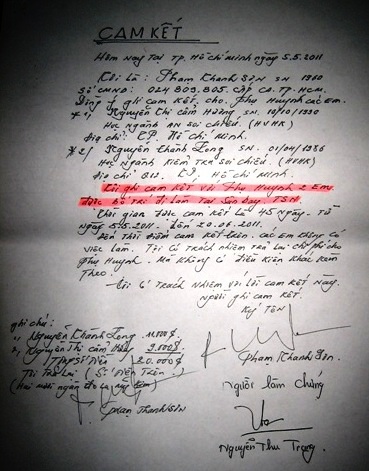 CAM KẾT
Hôm nay Tại TP. Hồ Chí Minh ngày 5.5.2011
Tôi là: Phạm Khanh Sơn SN 1960
Số CMND: 024 809.805. Cấp CA. TP. HCM.
ghi cam kết. cho. Phụ Huynh các Em.
* 1/ Nguyễn Thị Cẩm Hường SN. 10/10/1990
Học ngành An soi chiếu. (HVHK)
Địa chỉ: TP. Hồ Chí Minh.
* 2/ Nguyễn Khanh Long. SN. 01/04/1986
Học ngành Kiểm tra soi chiếu. (HVHK)
Địa chỉ Q12. TP. Hồ Chí Minh.
Tôi ghi cam kết với Phụ Huynh 2 Em
được bố trí đi làm Tại Sân bay. TSN.
Thời gian được cam kết là 45 ngày. Từ
ngày 5.5.2011. Đến 20.06.2011.
Đến Thời điểm cam kết trên. các Em không có
việc làm. Tôi có Trách nhiệm trả lại chi phí cho
Phụ Huynh. Mà không có điều kiện khác kèm
Theo.
Tôi có Trách Nhiệm với lời cam kết này.
Người ghi cam kết.
Ký Tên
ghi chú:
1, Nguyễn Khanh Long
2, Nguyễn Thị Cẩm Hường 9.000$
20.000$
Tôi Trả Lại (Số Tiền Trên)
(Hai mươi ngàn Đô la mỹ)
Phạm Khanh Sơn
Phạm Khanh Sơn.
Người làm chứng
Nguyễn Thu Trang.